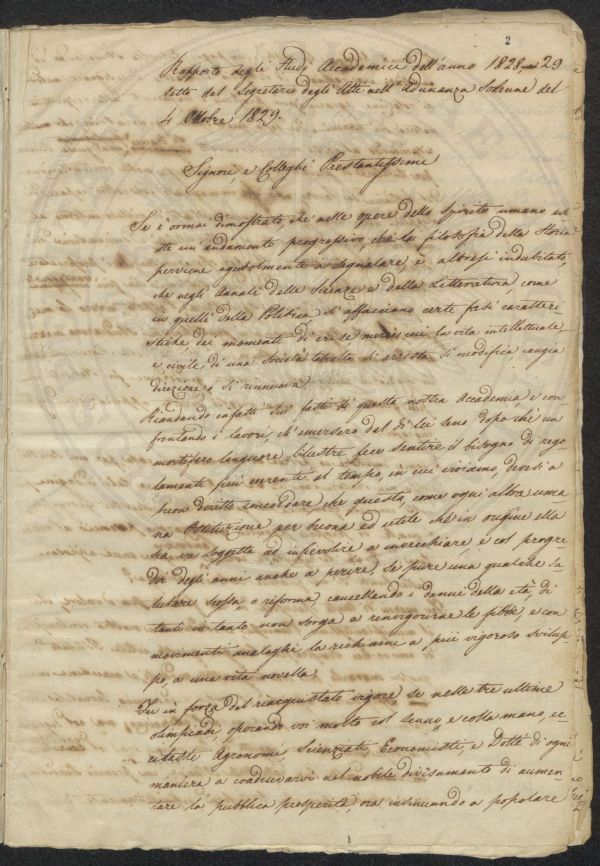 2
Rapporto degli Studj Accademici dell'anno 1828, e 29
letto dal Segretario degli Atti nell'Adunanza Solenne del
4 Ottobre 1829.
Signori, e Colleghi Prestantissimi
Se è ormai dimostrato, che nelle opere dello Spirito umano esi
ste un andamento progressivo, che la filosofia della Storia
perviene agevolmente a segnalare, è altresì indubitato,
che negli Annali delle Scienze e della Letteratura, come
in quelli della Politica si affacciano certe fasi caratteri
stiche, dei momenti di crise mercè cui la vita intellettuale
e civile di una Società talvolta si arresta si modifica cangia
direzione e si rinnuova.
Riandando infatti sui fatti di questa nostra Accademia e con
frontando i lavori, ch'emersero dal di lei seno dopo chè un
mortifero languore bilustre fece sentire il bisogno di rego-
lamenti più coerenti al tempo, in cui viviamo, devesi a
buon diritto concordare che questa, come ogni altra uma
na Istituzione per buona ed utile che in origine ella
sia, va soggetta ad infievolire a invecchiare, e col progre-
dir degli anni anche a perire, se pure una qualche sa-
lutare scossa, o riforma, cancellando i danni della età, di
tanto in tanto non sorga a rinvigorirne le fibre e con
movimenti analoghi la richiami a più vigoroso svilup-
po, a una vita novella.
Fu in forza del riacquistato vigore, se nelle tre ultime
olimpiadi, operando voi molto col senno, e colla mano, ec-
citaste Agronomi Scienziati, Economisti, e Dotti di ogni
maniera a coadiuvarvi nel nobile divisamento di aumen-
tare la pubblica prosperità, ora insinuando a popolare